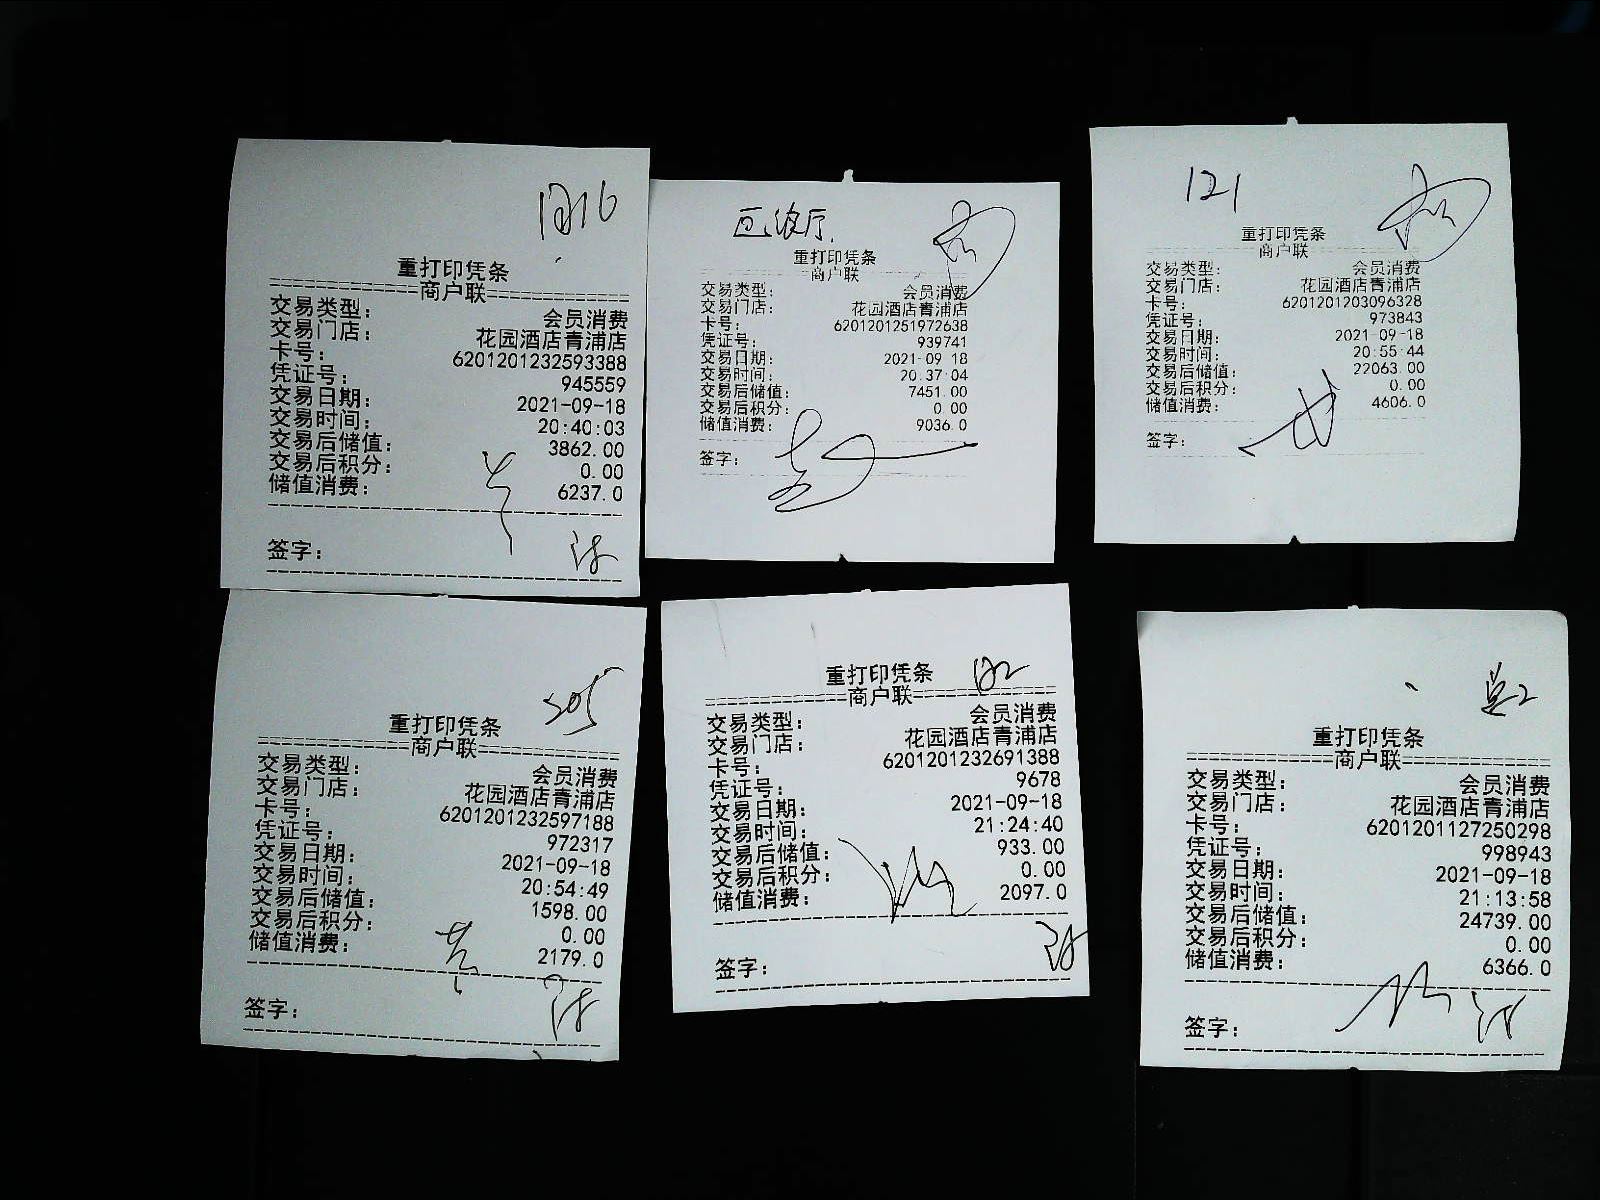 重打印凭条
商户联
交易类型: 会员消费
交易门店: 花园酒店青浦店
卡号: 6201201232593388
凭证号: 945559
交易日期: 2021-09-18
交易时间: 20:40:03
交易后储值: 3862.00
交易后积分: 0.00
储值消费: 6237.0
签字:
重打印凭条
商户联
交易类型: 会员消费
交易门店: 花园酒店青浦店
卡号: 6201201251972638
凭证号: 939741
交易日期: 2021-09-18
交易时间: 20:37:04
交易后储值: 7451.00
交易后积分: 0.00
储值消费: 9036.0
签字:
121
重打印凭条
商户联
交易类型: 会员消费
交易门店: 花园酒店青浦店
卡号: 6201201203096328
凭证号: 973843
交易日期: 2021-09-18
交易时间: 20:55:44
交易后储值: 22063.00
交易后积分: 0.00
储值消费: 4606.0
签字:
305
重打印凭条
商户联
交易类型: 会员消费
交易门店: 花园酒店青浦店
卡号: 6201201232597188
凭证号: 972317
交易日期: 2021-09-18
交易时间: 20:54:49
交易后储值: 1598.00
交易后积分: 0.00
储值消费: 2179.0
签字:
重打印凭条
商户联
交易类型: 会员消费
交易门店: 花园酒店青浦店
卡号: 6201201232691388
凭证号: 9678
交易日期: 2021-09-18
交易时间: 21:24:40
交易后储值: 933.00
交易后积分: 0.00
储值消费: 2097.0
签字:
重打印凭条
商户联
交易类型: 会员消费
交易门店: 花园酒店青浦店
卡号: 6201201127250298
凭证号: 998943
交易日期: 2021-09-18
交易时间: 21:13:58
交易后储值: 24739.00
交易后积分: 0.00
储值消费: 6366.0
签字: